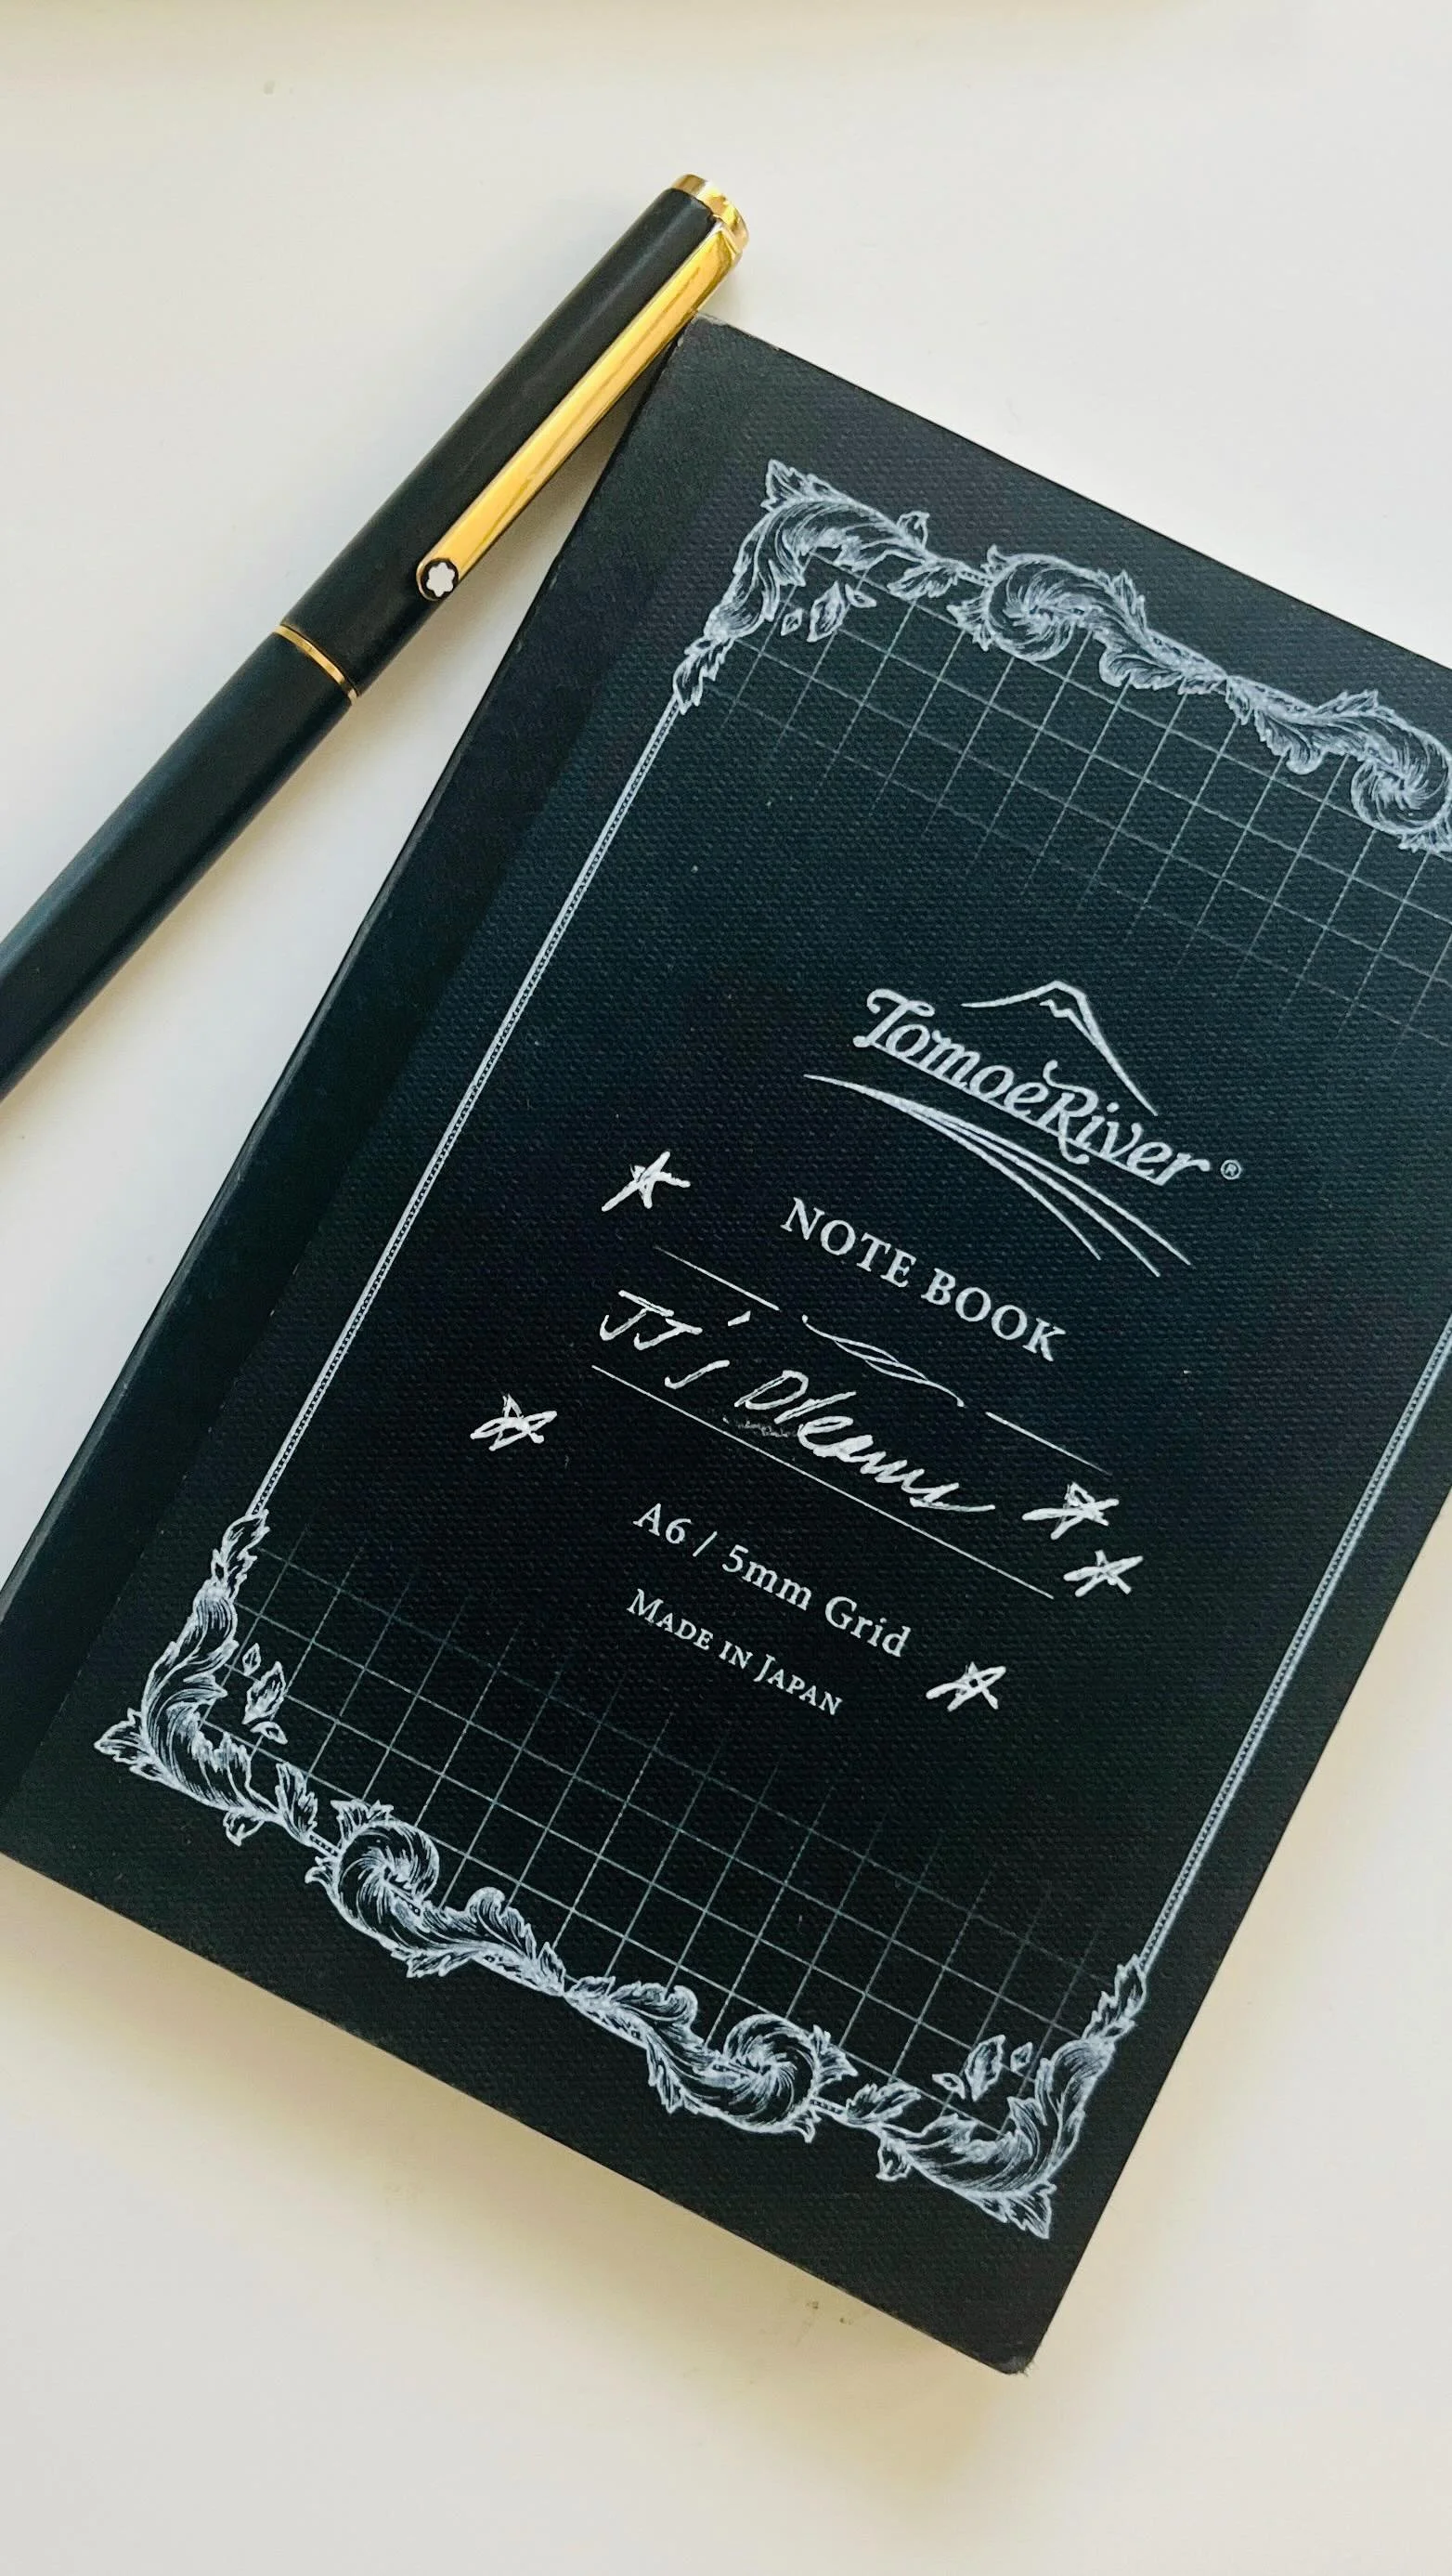 TomoeRiver®
NOTE BOOK
JJ's Dreams
A6 / 5mm Grid
MADE IN JAPAN